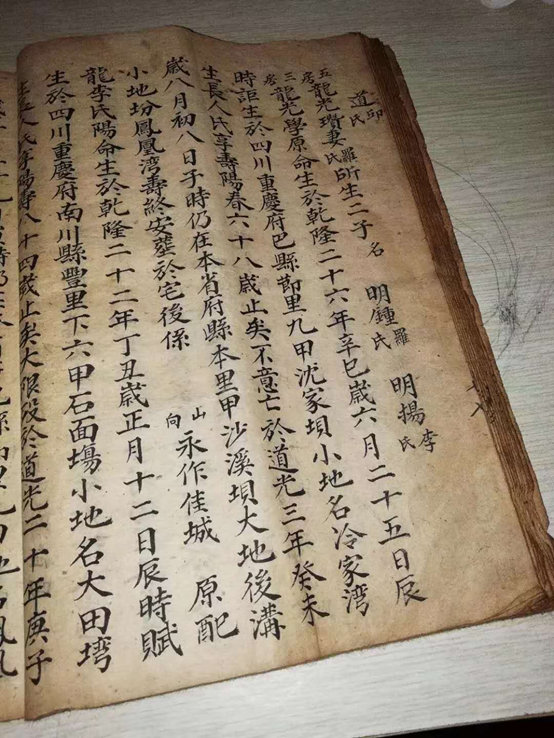 道印氏
五房龍光瓚妻羅氏所生二子名明鍾羅氏明揚李氏
三房龍光學原命生於乾隆二十六年辛巳歲六月二十五日辰
時詎生於四川重慶府巴縣節里九甲沈家垻小地名冷家湾
生長人氏享壽陽春六十八歲止矣不意亡於道光三年癸未
歲八月初八日子時仍在本省府縣本里甲沙溪垻大地後溝
小地坋鳳凰湾壽終安塟於宅後係山向永作佳城原配
龍李氏陽命生於乾隆二十二年丁丑歲正月十二日辰時賦
生於四川重慶府南川縣豐里下六甲石面塲小地名大田塆
生長人氏享陽壽八十四歲止矣大限殁於道光二十年庚子